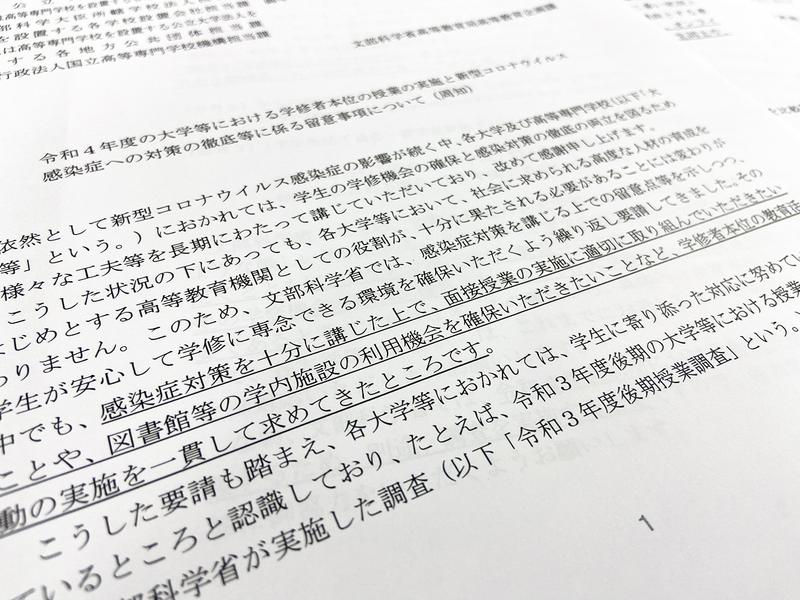 公立
部科学大臣所轄学校法人担
高等専門学校を設置する公立大学法人を
を設置する各学校設置会社担当課
は高等専門学校を設置する
する各地方公共団体担当課
行政法人国立高等専門学校機構担当課
文部科学省高等教育局高等教育企画課
令和4年度の大学等における学修者本位の授業の実施と新型コロナウイルス
感染症への対策の徹底等に係る留意事項について(周知)
依然として新型コロナウイルス感染症の影響が続く中、各大学及び高等専門学校(以下「大
等」という。)におかれては、学生の学修機会の確保と感染対策の徹底の両立を図るため
様々な工夫等を長期にわたって講じていただいており、改めて感謝申し上げます。
こうした状況の下にあっても、各大学等において、社会に求められる高度な人材の育成を
はじめとする高等教育機関としての役割が、十分に果たされる必要があることには変わりが
ありません。このため、文部科学省では、感染症対策を講じる上での留意点等を示しつつ、
学生が安心して学修に専念できる環境を確保いただくよう繰り返し要請してきました。その
中でも、感染症対策を十分に講じた上で、面接授業の実施に適切に取り組んでいただきたい
ことや、図書館等の学内施設の利用機会を確保いただきたいことなど、学修者本位の教育活
動の実施を一貫して求めてきたところです。
こうした要請も踏まえ、各大学等におかれては、学生に寄り添った対応に努めてい
ているところと認識しており、たとえば、令和3年度後期の大学等における授業
部科学省が実施した調査(以下「令和3年度後期授業調査」という。
1